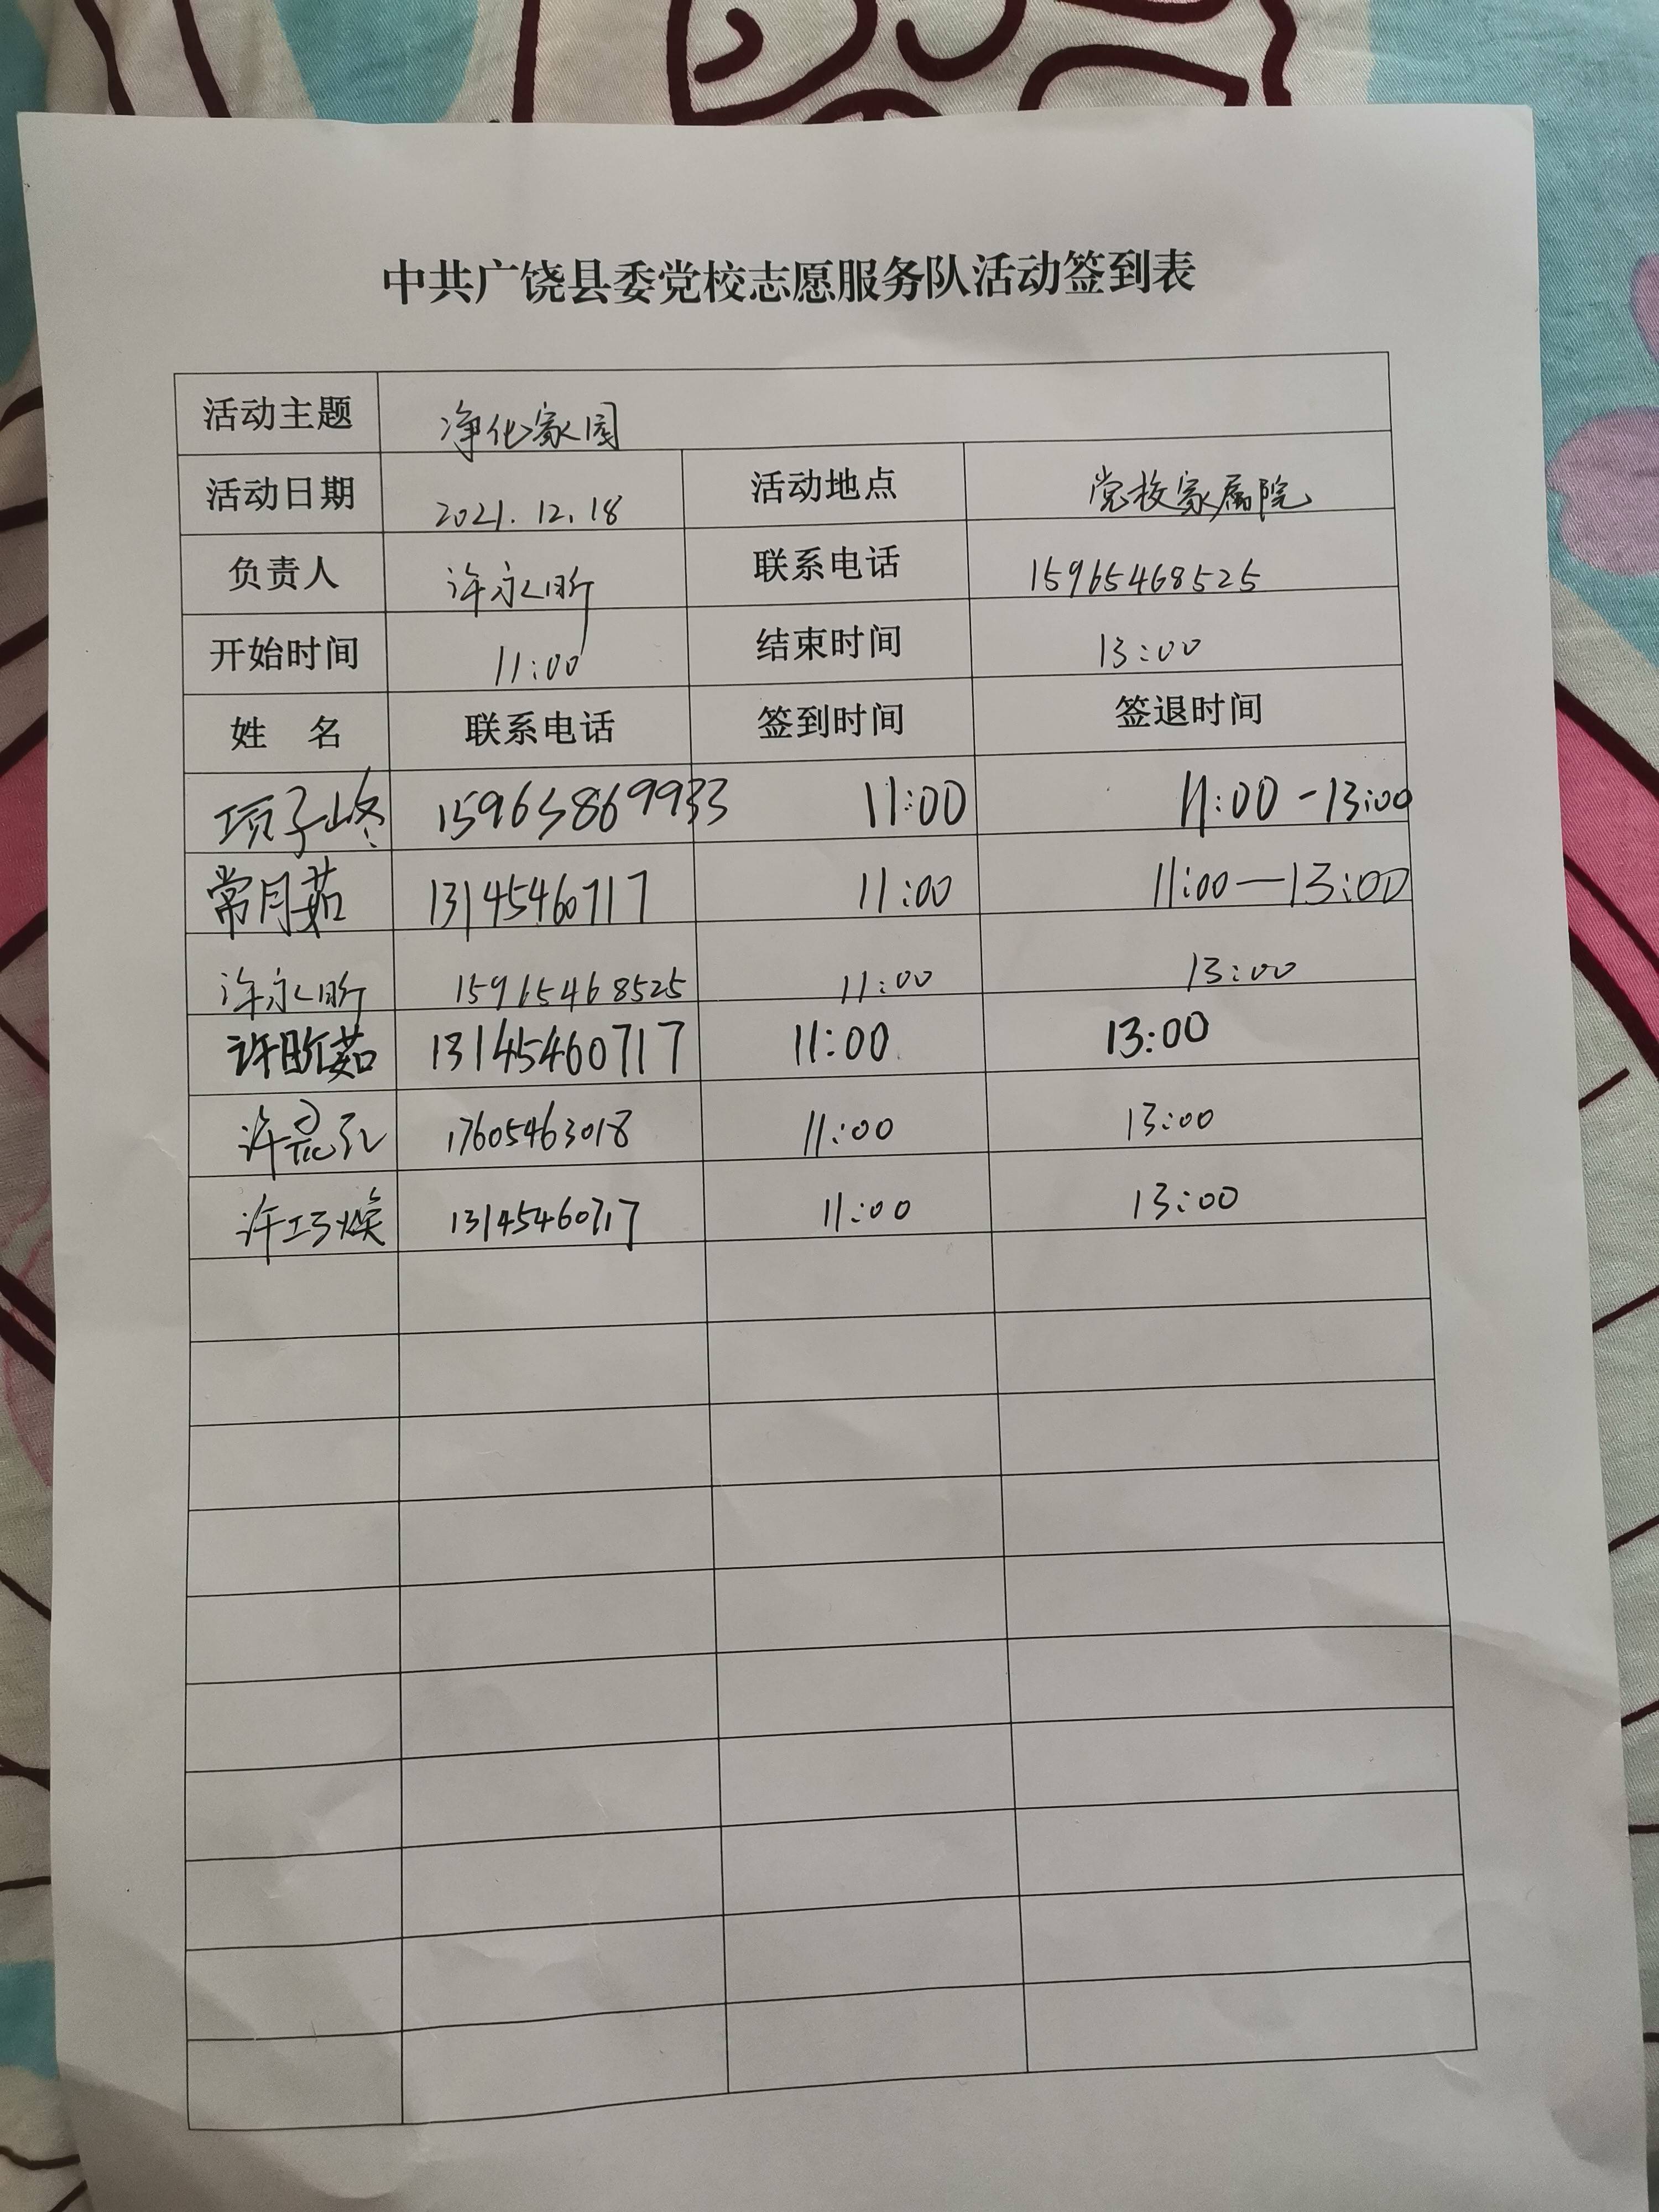 中共广饶县委党校志愿服务队活动签到表
活动主题 净化家园
活动日期 2021.12.18 活动地点 党校家属院
负责人 许永昕 联系电话 15965468525
开始时间 11:00 结束时间 13:00
姓 名 联系电话 签到时间 签退时间
项子峰 15963869933 11:00 11:00-13:00
常月茹 13145460717 11:00 11:00—13:00
许永昕 15965468525 11:00 13:00
许昕茹 13145460717 11:00 13:00
许 17605463018 11:00 13:00
许巧焕 13145460717 11:00 13:00